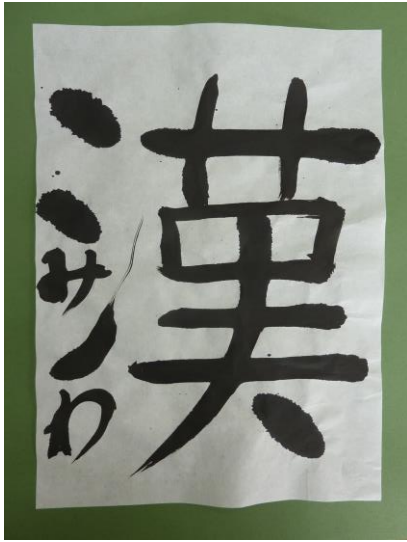 漢
みわ